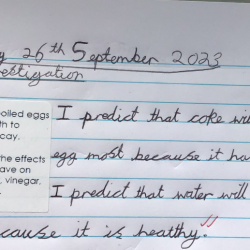 y 26th September 2023
estigation
oiled eggs
th to
cay.
I predict that coke wi
he effects
ave on
, vinegar,
egg most because it ha
I predict that water will
cause it is healthy.